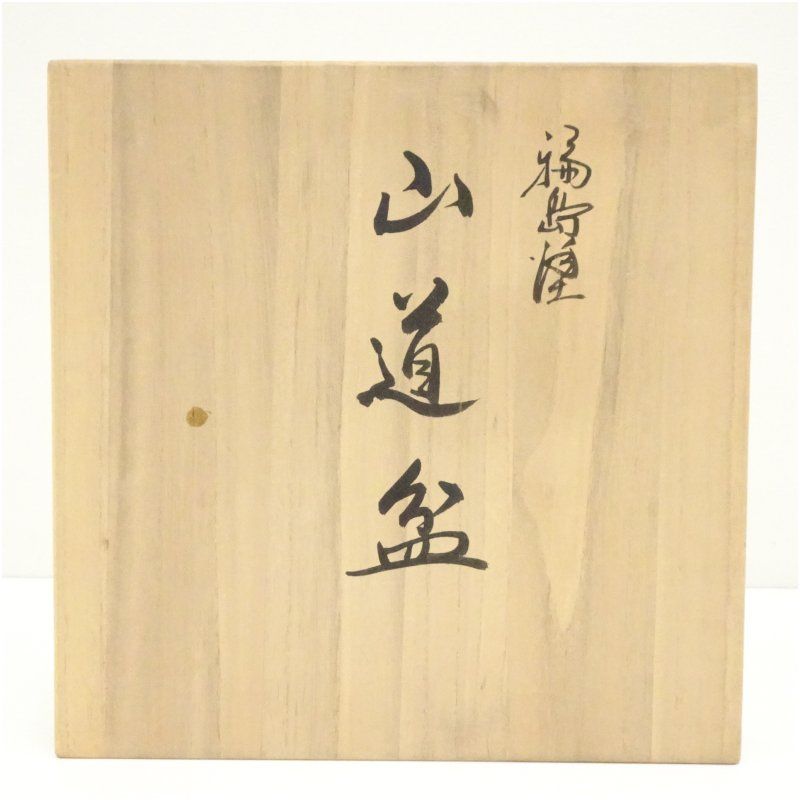 福島塗
山道盆